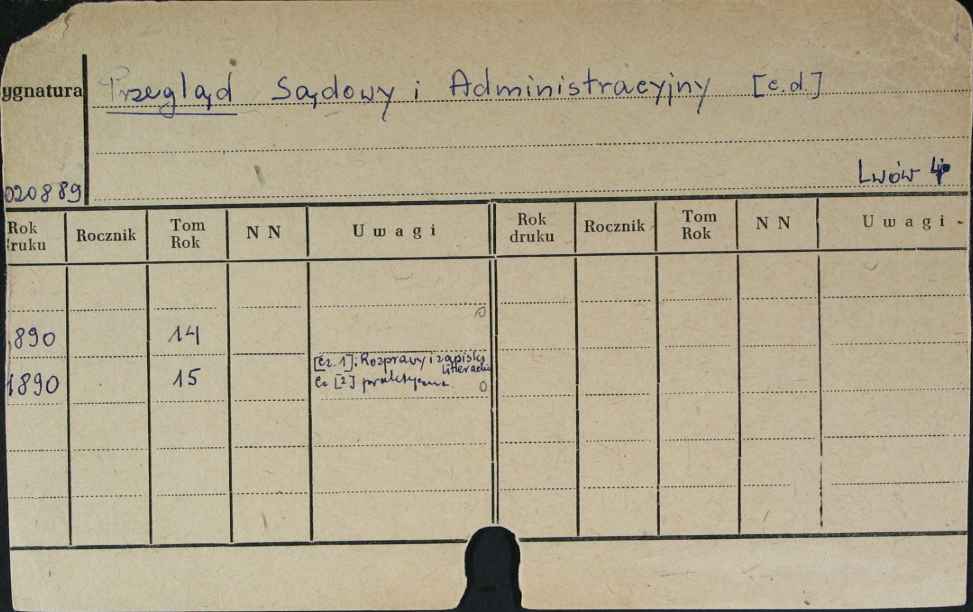 ygnatura Przegląd Sądowy i Administracyjny [c.d.]
020889 Lwów 4
Rok druku Rocznik Tom Rok NN Uwagi Rok druku Rocznik Tom Rok NN Uwagi
890 14
1890 15 [cz. 1]: Rozprawy i zapiski
literackie
cz [2] praktyczna